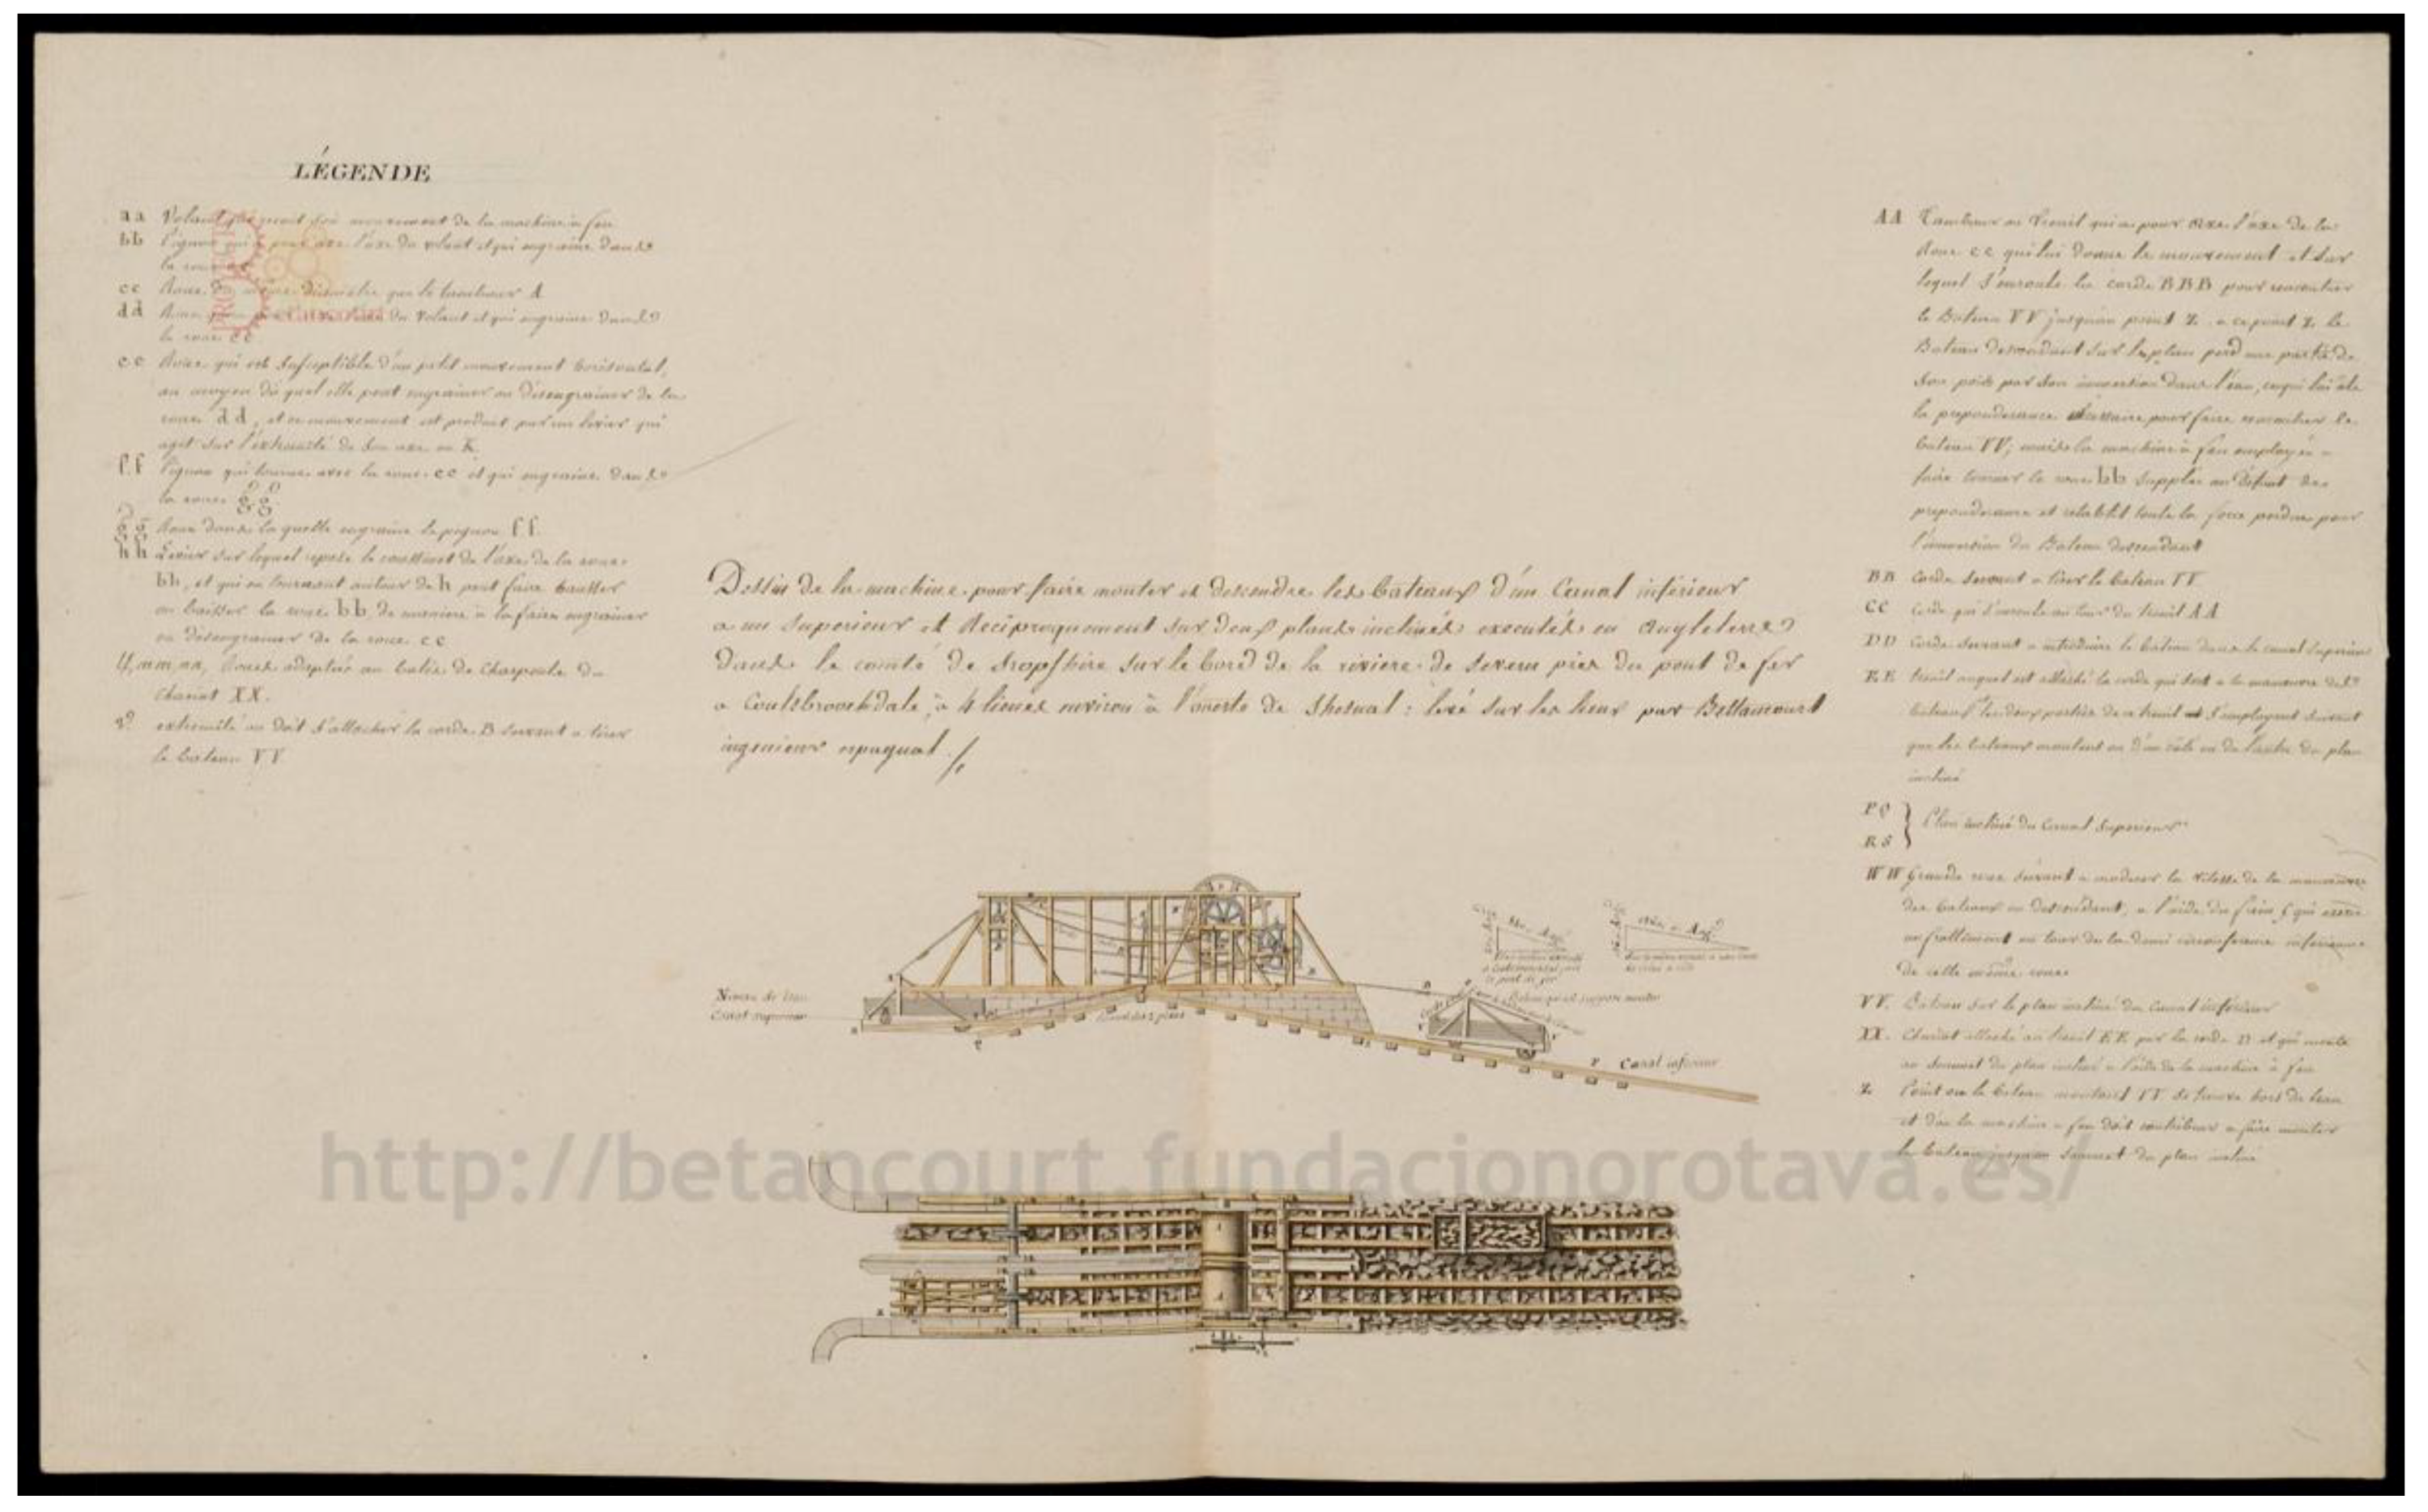 LÉGENDE
aa Volant qui reçoit son mouvement de la machine à feu
bb Pignon qui a pour axe l'axe du volant et qui engraine dans
la roue
cc Roue du même diamètre que le tambour A
dd Roue du volant et qui engraine dans
la roue cc
ee Roue qui est susceptible d'un petit mouvement horisontal,
au moyen du quel elle peut engrainer ou désengrainer de la
roue dd, et ce mouvement est produit par un levier qui
agit sur l'extremité de son axe en K.
ff Pignon qui tourne avec la roue ee et qui engraine dans
la roue gg
gg Roue dans la quelle engraine le pignon ff.
hh Levier sur lequel repose le coussinet de l'axe de la roue
bb, et qui en tournant autour de h peut faire hausser
ou baisser la roue bb, de maniere à la faire engrainer
ou désengrainer de la roue cc
ll, mm, nn, Roues adaptées au batis de Charpente du
Chariot XX.
extremité ou doit s'attacher la corde B servant a tirer
le bateau VV
Dessin de la machine pour faire monter et descendre les bateaux d'un Canal inférieur
a un superieur et Réciproquement sur deux plants inclinés executés en Angleterre
dans le comté de Shropshire sur le bord de la riviere de Severn près du pont de fer
a Coulsbrookdale, à 4 lieues environ à l'oueste de : levé sur les lieux par Bettancourt
ingenieur espagnol.
AA Tambour ou Treuil qui a pour axe l'axe de la
Roue cc qui lui donne le mouvement et sur
lequel s'enroule la corde BBB pour remonter
le Bateau VV jusquau point Z. a ce point Z le
Bateau descendant sur le plan perd une partie de
son poids par son immertion dans l'eau, ce qui lui ote
la preponderance necessaire pour faire remonter le
bateau VV; mais la machine à feu employée a
faire tourner la roue bb supplée au défaut de
preponderance et retablit toute la force perdue par
l'immertion du Bateau descendant
BB Corde servant a tirer le bateau VV
CC Corde qui s'enroule au tour du treuil AA
DD Corde servant a introduire le bateau dans le canal superieur
EE treuil auquel est attaché la corde qui sert a la manœuvre des
bateaux les deux parties de ce treuil s'employent suivant
que les bateaux montent ou d'un côté ou de l'autre du plan
incliné
PQ
RS } Plan incliné du Canal superieur
WW Grande roue servant a moderer la vitesse de la manœuvre
des bateaux en descendant, a l'aide du frein qui exerce
un frottement au tour de la demi circonference inferieure
de cette même roue
VV. Bateau sur le plan incliné du Canal inférieur
XX. Chariot attaché au treuil EE par la corde D et qui monte
au sommet du plan incliné a l'aide de la machine à feu
Z Point ou le bateau montant VV se trouve hors de l'eau
et d'ou la machine a feu doit contribuer a faire monter
le bateau jusquau sommet du plan incliné
Niveau de l'eau
Canal superieur
Canal inferieur
http://betancourt.fundacionorotava.es/